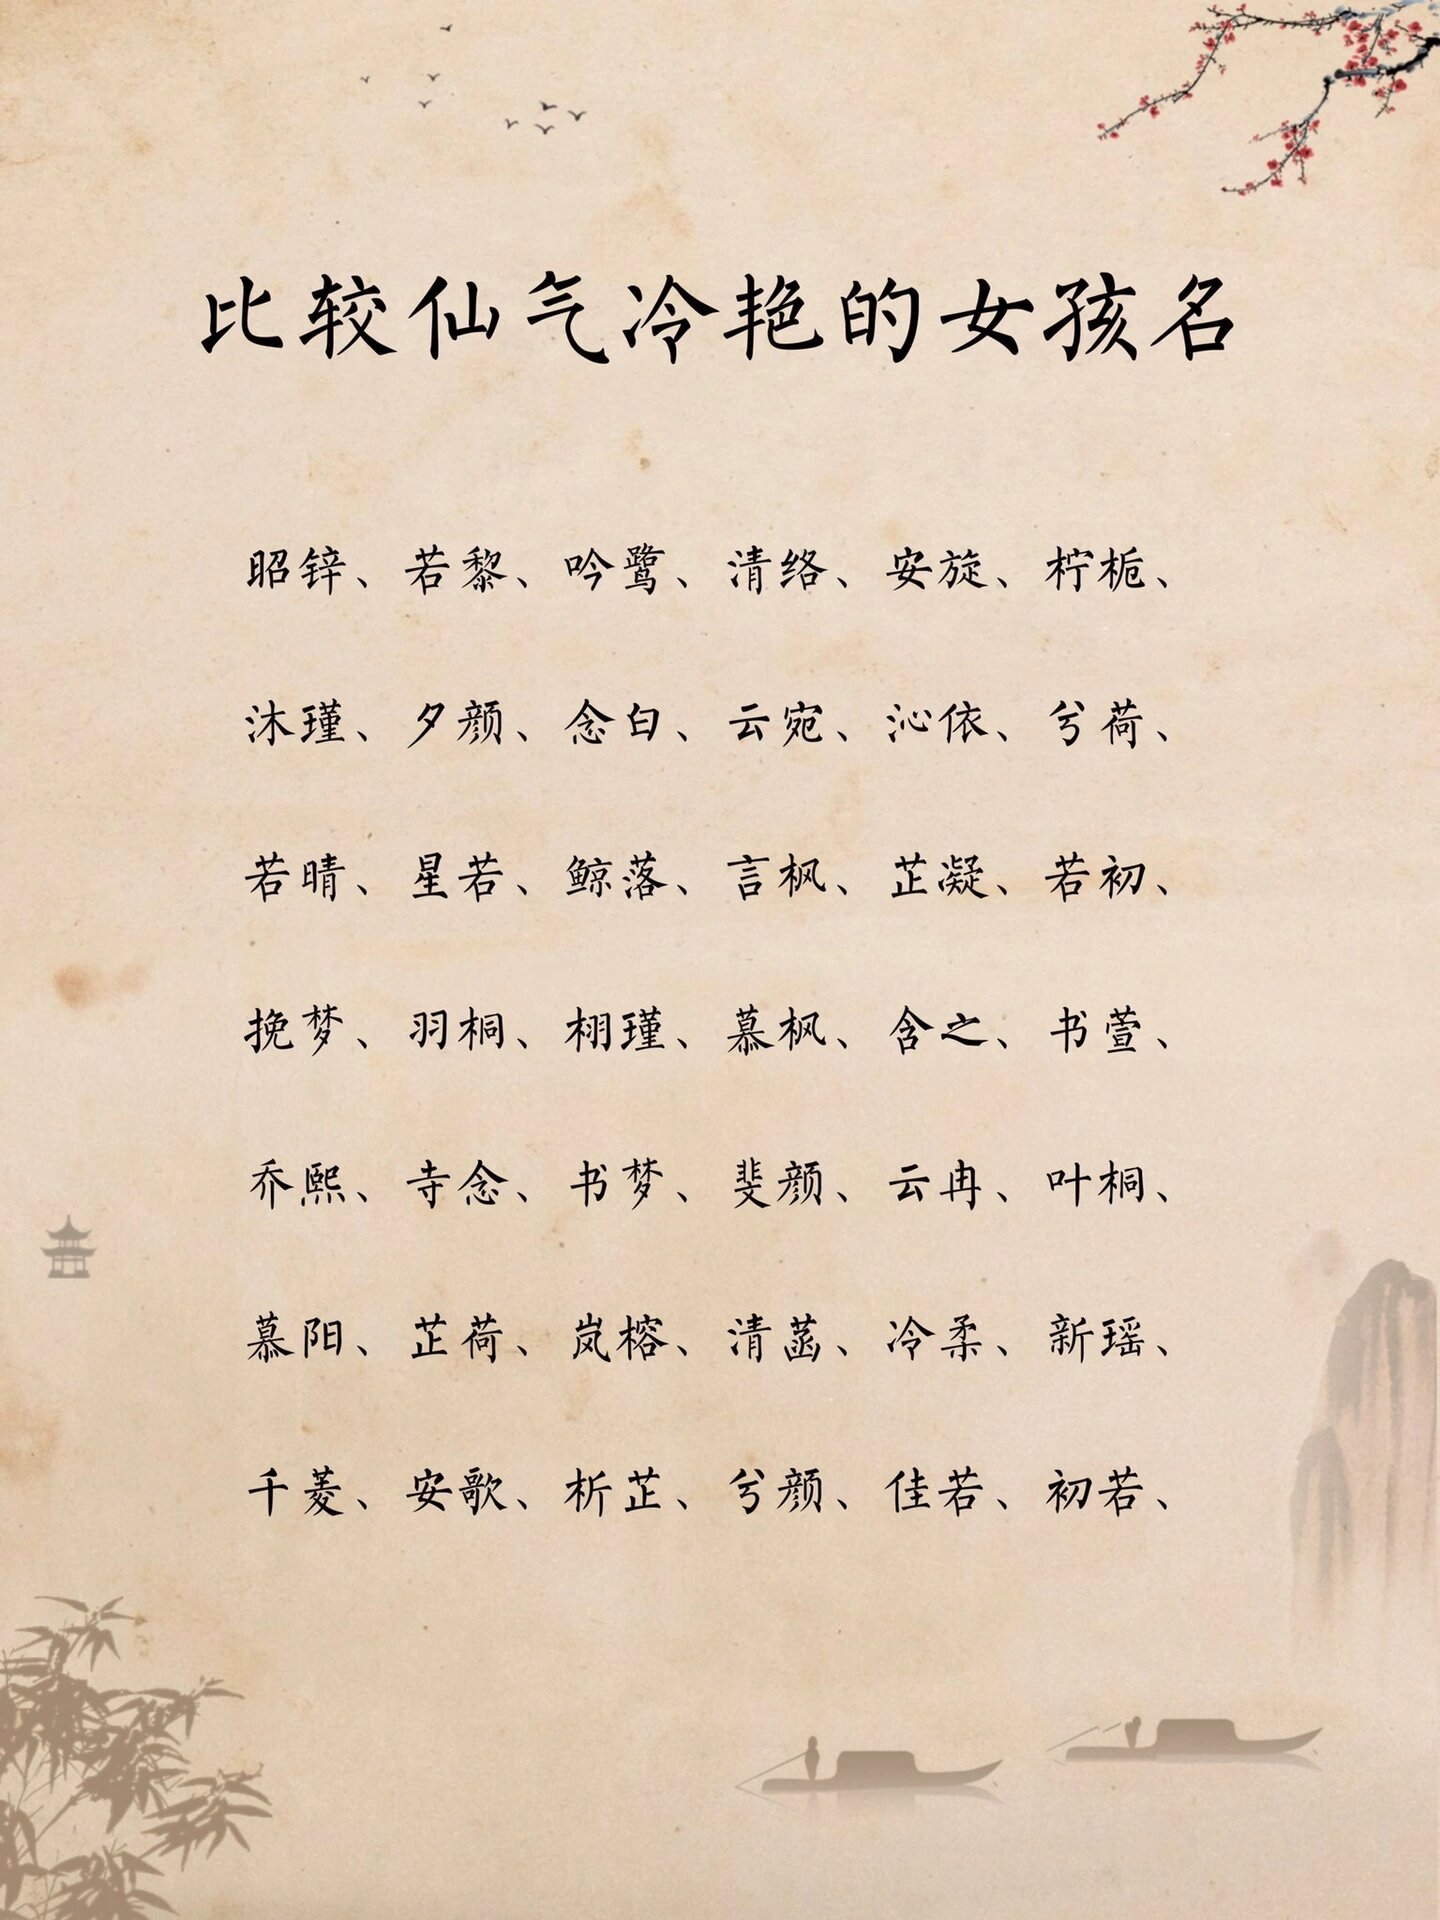 比较仙气冷艳的女孩名
昭锌、若黎、吟鹭、清络、安旋、柠栀、
沐瑾、夕颜、念白、云宛、沁依、兮荷、
若晴、星若、鲸落、言枫、芷凝、若初、
挽梦、羽桐、栩瑾、慕枫、含之、书萱、
乔熙、寺念、书梦、斐颜、云冉、叶桐、
慕阳、芷荷、岚榕、清菡、冷柔、新瑶、
千菱、安歌、析芷、兮颜、佳若、初若、